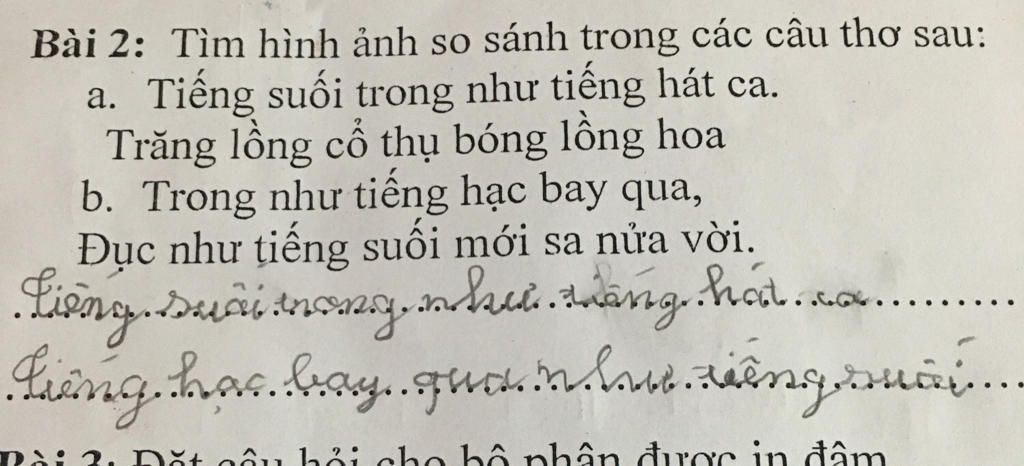 Bài 2: Tìm hình ảnh so sánh trong các câu thơ sau:
a. Tiếng suối trong như tiếng hát ca.
Trăng lồng cổ thụ bóng lồng hoa
b. Trong như tiếng hạc bay qua,
Đục như tiếng suối mới sa nửa vời.
Tiếng suối trong như tiếng hát ca
Tiếng hạc bay qua như tiếng suối
Bài 3: Đặt câu hỏi cho bộ phận được in đậm